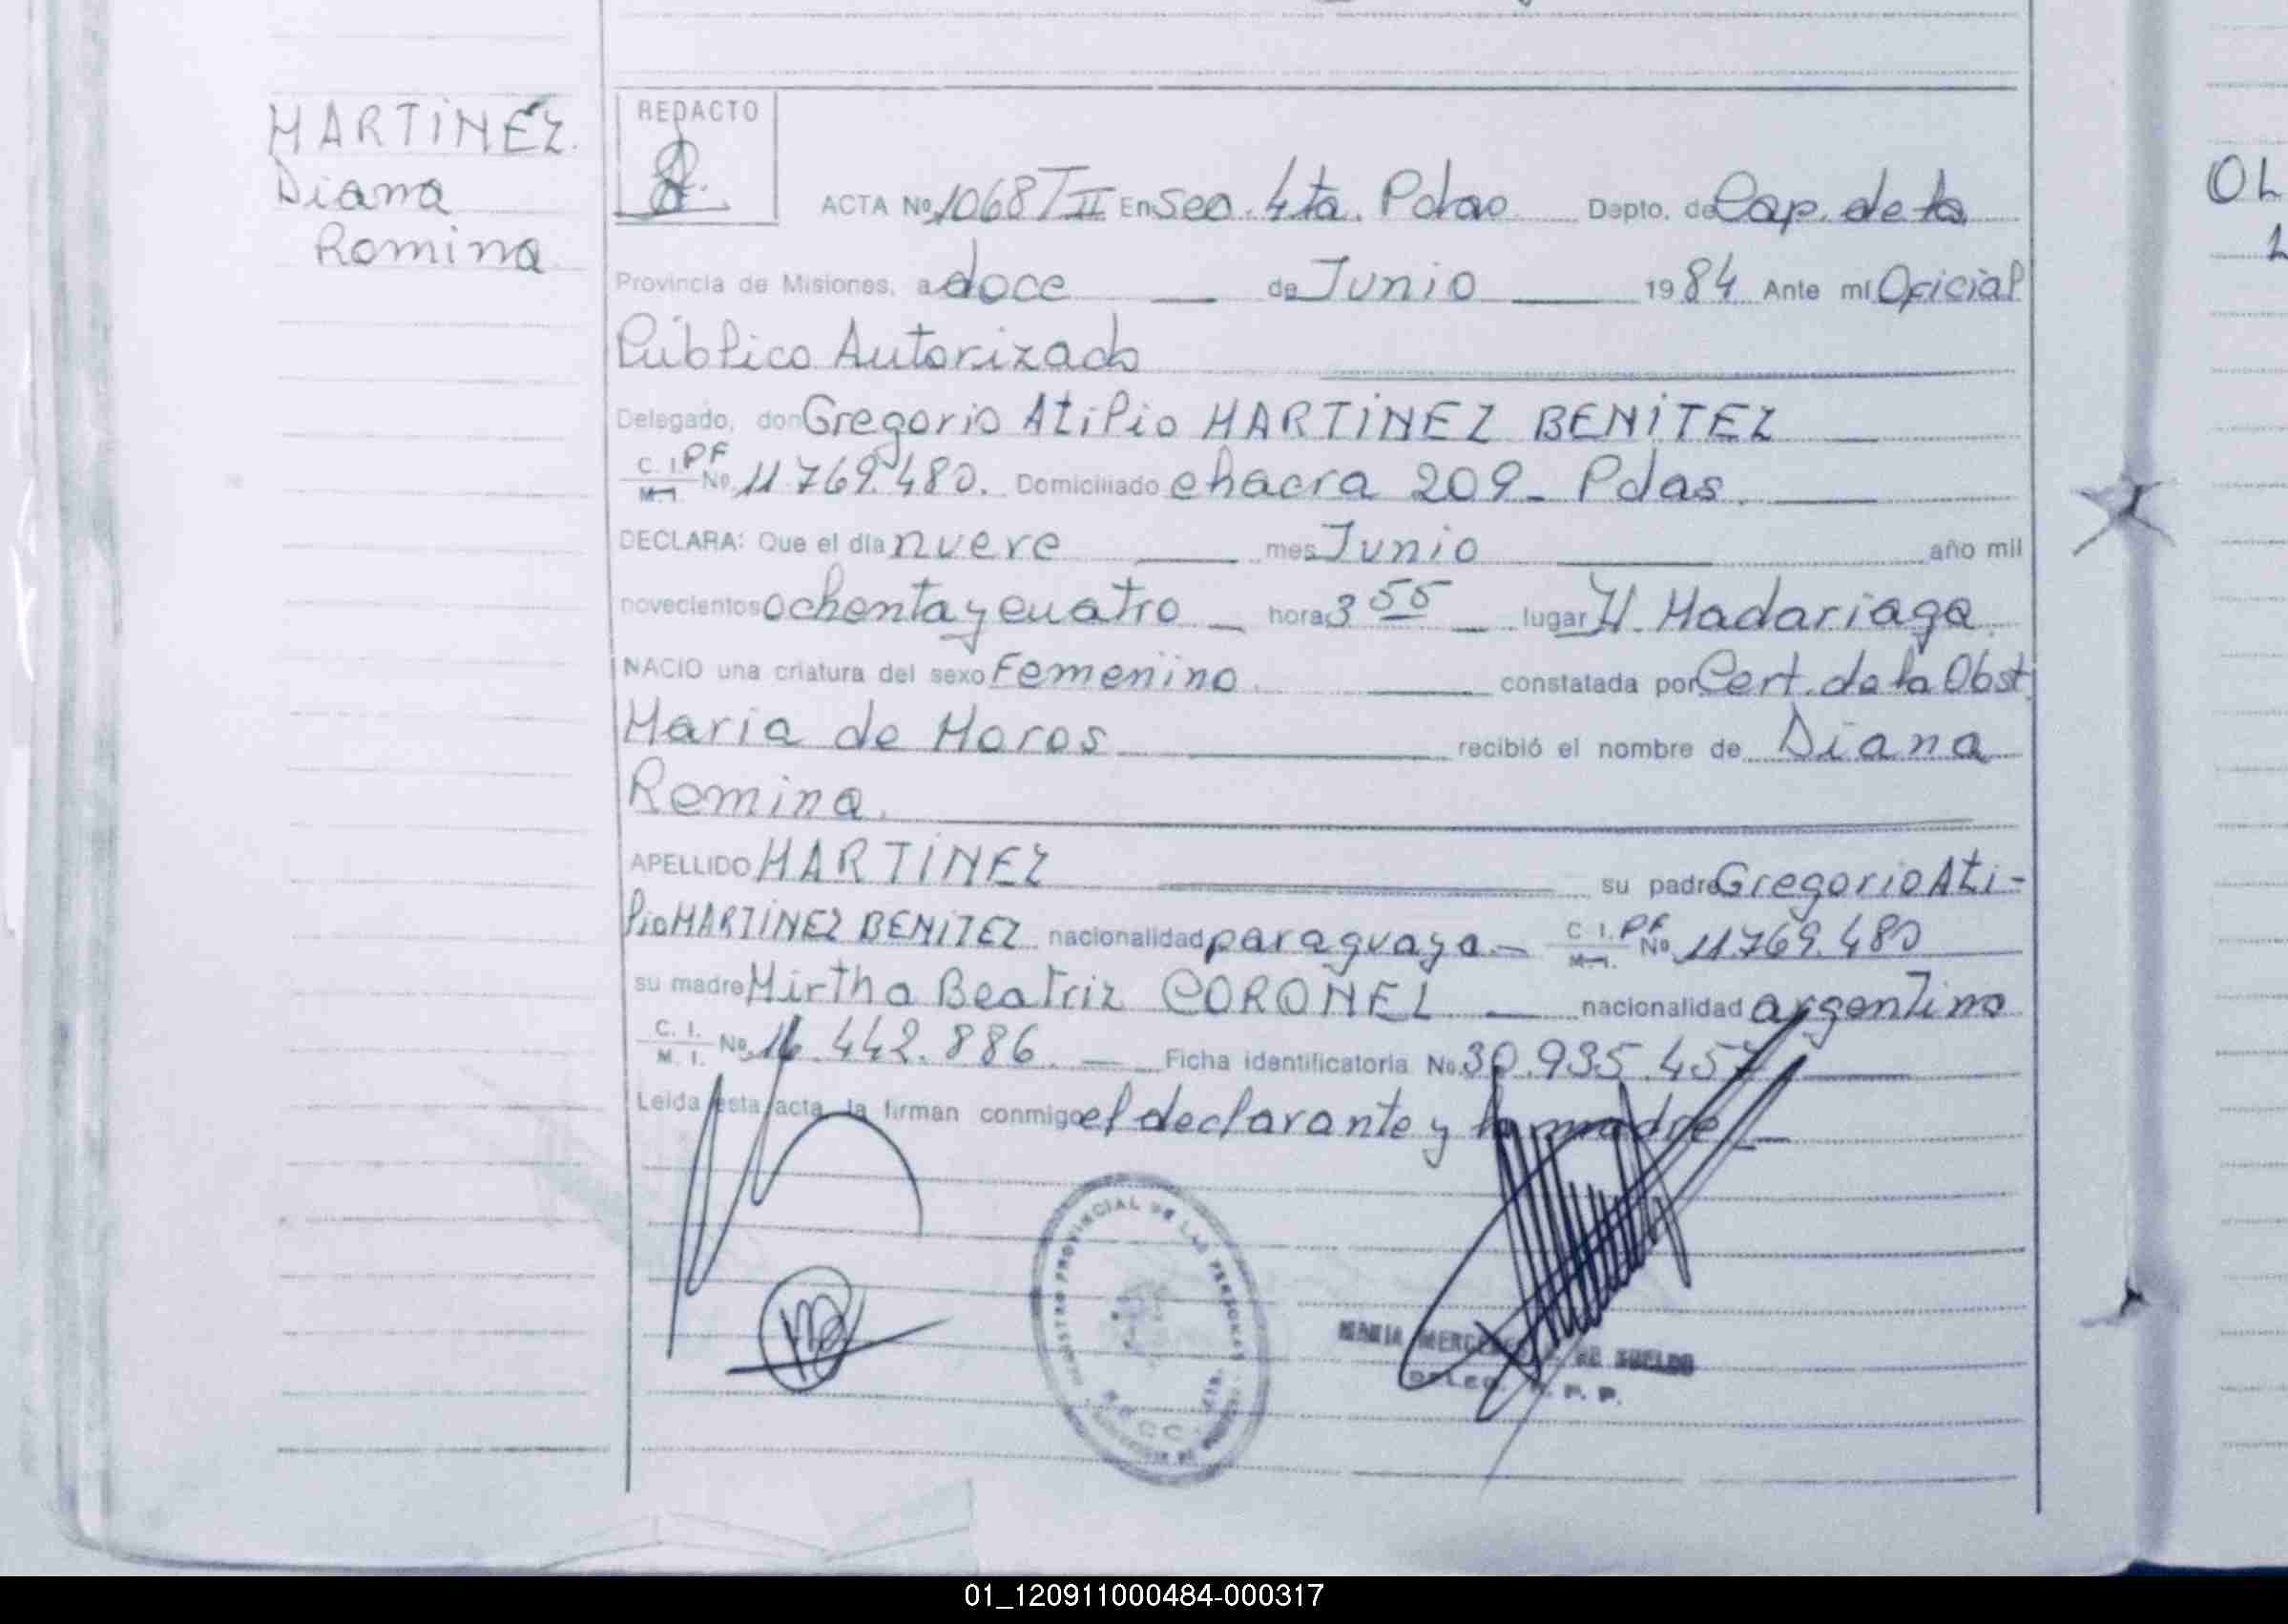 MARTINEZ
Diana
Romina
REDACTO
ACTA Nº 1068 T II En Sec. 4ta. Pdas Depto. de Cap. de la
Provincia de Misiones, a doce de Junio 1984 Ante mí Oficial
Público Autorizado
Delegado, don Gregorio Atilio MARTINEZ BENITEZ
C. I. PF
M. I. Nº 11.769.480. Domiciliado chacra 209 - Pdas.
DECLARA: Que el día nueve mes Junio año mil
novecientos ochenta y cuatro hora 3 55 lugar H. Madariaga.
NACIO una criatura del sexo Femenino constatada por Cert. de la Obst.
Maria de Moros recibió el nombre de Diana
Romina.
APELLIDO MARTINEZ su padre Gregorio Ati-
lio MARTINEZ BENITEZ nacionalidad paraguaya - C I. PF M. I. Nº 11.769.480
su madre Mirtha Beatriz CORONEL nacionalidad argentina
C. I.
M. I. Nº 16.442.886. Ficha identificatoria Nº 30.935.457
Leída esta acta, la firman conmigo el declarante y la madre
REGISTRO PROVINCIAL DE LAS PERSONAS
MARIA DE SUELDO
DELEG. R. P. P.
OL
01_120911000484-000317